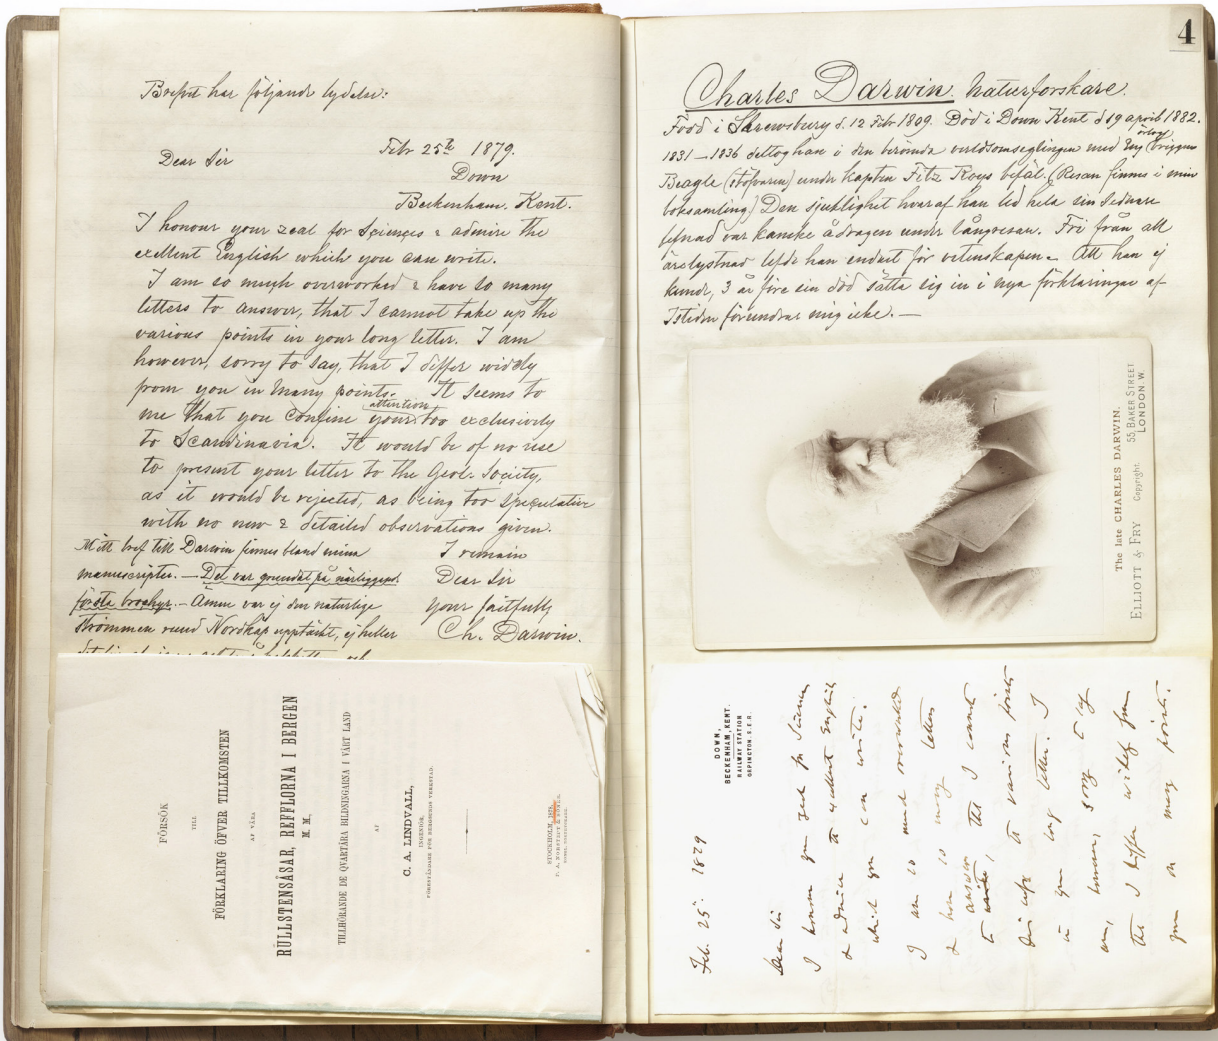 Brefvet har följande lydelse:
Febr 25th 1879.
Dear Sir
Down
Beckenham. Kent.
I honour your zeal for Sciences & admire the
exellent English which you can write.
I am so much overworked & have so many
letters to answer, that I cannot take up the
various points in your long letter. I am
however, sorry to say, that I differ widely
from you in many points. It seems to
me that you confine your attention too exclusively
to Scandinavia. It would be of no use
to present your letter to the Geol. Society,
as it would be rejected, as being too speculative
with no new & detailed observations given.
I remain
Dear Sir
your faitfully
Ch. Darwin.
Mitt bref till Darwin finnes bland mina
manuscripter. — Det var grundat på närliggend.
första brochyr. — Ännu var ej den naturlige
strömmen rund Nordkap upptäckt, ej heller
FÖRSÖK
TILL
FÖRKLARING ÖFVER TILLKOMSTEN
AF VÅRA
RULLSTENSÅSAR, REFFLORNA I BERGEN
M. M.,
TILLHÖRANDE DE QVARTÄRA BILDNINGARNA I VÅRT LAND
AF
C. A. LINDVALL,
INGENIÖR.
FÖRESTÅNDARE FÖR BERGSUNDS VERKSTAD.
STOCKHOLM, 1876.
P. A. NORSTEDT & SÖNER.
KONGL. BOKTRYCKARE.
4
Charles Darwin. Naturforskare.
Född i Shrewsbury d. 12 Febr 1809. Död i Down Kent d 19 april 1882.
1831 – 1836 deltog han i den berömda verldsomseglingen med Eng örlogs briggen
Beagle (stöfvaren) under kapten Fitz Roys befäl. (Resan finnes i min
boksamling) Den sjuklighet hvaraf han led hela sin sednare
lefnad var kanske ådragen under långresan. Fri från all
ärelystnad lefde han endast för vetenskapen. Att han ej
kunde, 3 år före sin död sätta sig in i nya förklaringar af
Istiden förundrar mig icke. —
The late CHARLES DARWIN.
ELLIOTT & FRY Copyright. 55, BAKER STREET
LONDON. W.
DOWN,
BECKENHAM, KENT.
RAILWAY STATION
ORPINGTON. S.E.R.
Feb. 25. 1879
Dear Sir
I honour your zeal for Science
& admire the excellent English
which you can write.
I am so much overworked
& have so many letters
to answer, that I cannot
take up the various points
in your long letter. I
am, however, sorry to say
that I differ widely from
you on many points.